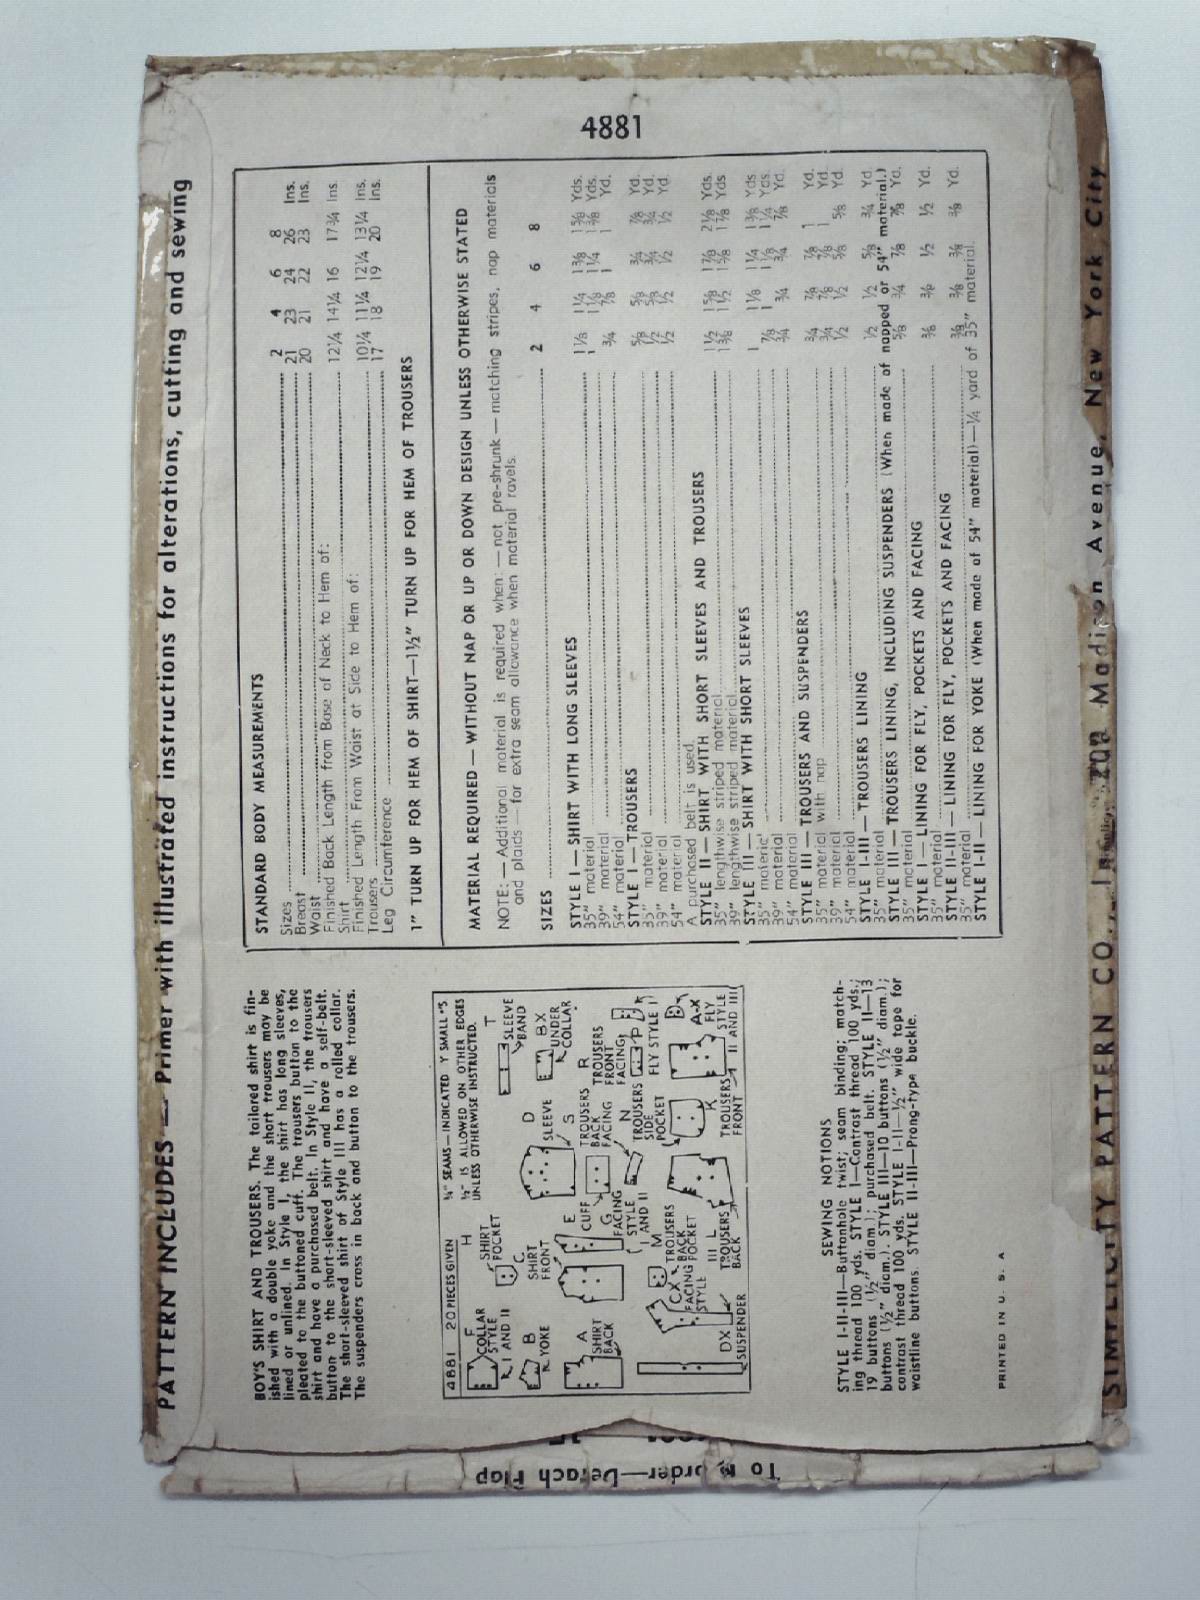 4881
PATTERN INCLUDES — Primer with illustrated instructions for alterations, cutting and sewing
BOY'S SHIRT AND TROUSERS. The tailored shirt is fin-
ished with a double yoke and the short trousers may be
lined or unlined. In Style I, the shirt has long sleeves,
pleated to the buttoned cuff. The trousers button to the
shirt and have a purchased belt. In Style II, the trousers
button to the short-sleeved shirt and have a self-belt.
The short-sleeved shirt of Style III has a rolled collar.
The suspenders cross in back and button to the trousers.
4881 20 PIECES GIVEN
¾" SEAMS — INDICATED Y SMALL
½" IS ALLOWED ON OTHER EDGES
UNLESS OTHERWISE INSTRUCTED.
F
COLLAR
STYLE
I AND II
H
SHIRT
POCKET
B
YOKE
C
SHIRT
FRONT
A
SHIRT
BACK
E
CUFF
G
FACING
STYLE
I AND II
D
SLEEVE
T
SLEEVE
BAND
BX
UNDER
COLLAR
S
TROUSERS
BACK
FACING
R
TROUSERS
FRONT
FACING
N
TROUSERS
SIDE
POCKET
P
FLY STYLE I
A-X
FLY
STYLE
II AND III
K
TROUSERS
FRONT
M
TROUSERS
BACK
POCKET
CX
FACING
STYLE
III
L
TROUSERS
BACK
DX
SUSPENDER
SEWING NOTIONS
STYLE I-II-III—Buttonhole twist; seam binding; match-
ing thread 100 yds. STYLE I—Contrast thread 100 yds.;
19 buttons (½" diam.); purchased belt. STYLE II—13
buttons (½" diam.). STYLE III—10 buttons (½" diam.);
contrast thread 100 yds. STYLE I-II—½" wide tape for
waistline buttons. STYLE II-III—Prong-type buckle.
PRINTED IN U. S. A
STANDARD BODY MEASUREMENTS
Sizes 2 4 6 8
Breast 21 23 24 26 Ins.
Waist 20 21 22 23 Ins.
Finished Back Length from Base of Neck to Hem of:
Shirt 12¼ 14¼ 16 17¾ Ins.
Finished Length From Waist at Side to Hem of:
Trousers 10¼ 11¼ 12¼ 13¼ Ins.
Leg Circumference 17 18 19 20 Ins.
1" TURN UP FOR HEM OF SHIRT—1½" TURN UP FOR HEM OF TROUSERS
MATERIAL REQUIRED — WITHOUT NAP OR UP OR DOWN DESIGN UNLESS OTHERWISE STATED
NOTE: — Additional material is required when: — not pre-shrunk — matching stripes, nap materials
and plaids — for extra seam allowance when material ravels.
SIZES 2 4 6 8
STYLE I — SHIRT WITH LONG SLEEVES
35" material 1⅛ 1¼ 1⅜ 1⅝ Yds.
39" material 1 1⅛ 1¼ 1⅜ Yds.
54" material ¾ ⅞ 1 1 Yd.
STYLE I — TROUSERS
35" material ⅝ ⅝ ¾ ⅞ Yd.
39" material ½ ⅝ ¾ ¾ Yd.
54" material ½ ½ ½ ½ Yd.
A purchased belt is used.
STYLE II — SHIRT WITH SHORT SLEEVES AND TROUSERS
35" lengthwise striped material 1½ 1⅝ 1⅞ 2⅛ Yds.
39" lengthwise striped material 1⅜ 1½ 1⅝ 1⅞ Yds
STYLE III — SHIRT WITH SHORT SLEEVES
35" material 1 1⅛ 1¼ 1⅜ Yds
39" material ⅞ 1⅛ 1¼ Yds.
54" material ¾ ¾ ¾ ⅞ Yd.
STYLE III — TROUSERS AND SUSPENDERS
35" material with nap ¾ ⅞ ⅞ 1 Yd.
39" material ¾ ⅞ ⅞ 1 Yd.
54" material ½ ½ ⅝ ⅝ Yd.
STYLE I-III — TROUSERS LINING
35" material ½ ½ ⅝ ¾ Yd.
STYLE III — TROUSERS LINING, INCLUDING SUSPENDERS (When made of napped or 54" material.)
35" material ⅝ ¾ ⅞ ⅞ Yd.
STYLE I — LINING FOR FLY, POCKETS AND FACING
35" material ⅜ ⅜ ½ ½ Yd.
STYLE II-III — LINING FOR FLY, POCKETS AND FACING
35" material ⅜ ⅜ ⅜ ⅜ Yd.
STYLE I-II — LINING FOR YOKE (When made of 54" material)—¼ yard of 35" material.
SIMPLICITY PATTERN CO., In 200 Madison Avenue, New York City
To R order—Detach Flap